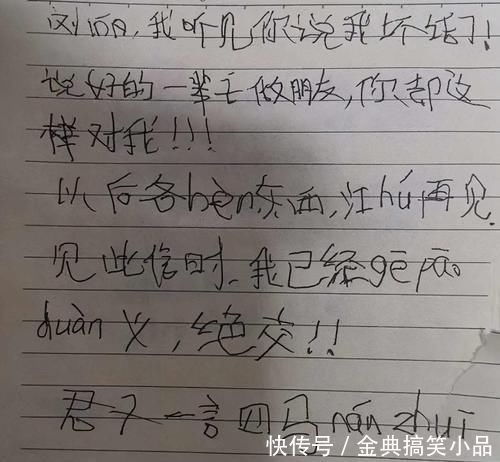 刘丽,我听见你说我坏话了!
说好的一辈子做朋友,你却这
样对我!!!
以后各bèn东西,江hú再见.
见此信时,我已经gē páo
duàn义,绝交!!
君子一言四马nán zhuī
快传号/金典搞笑小品